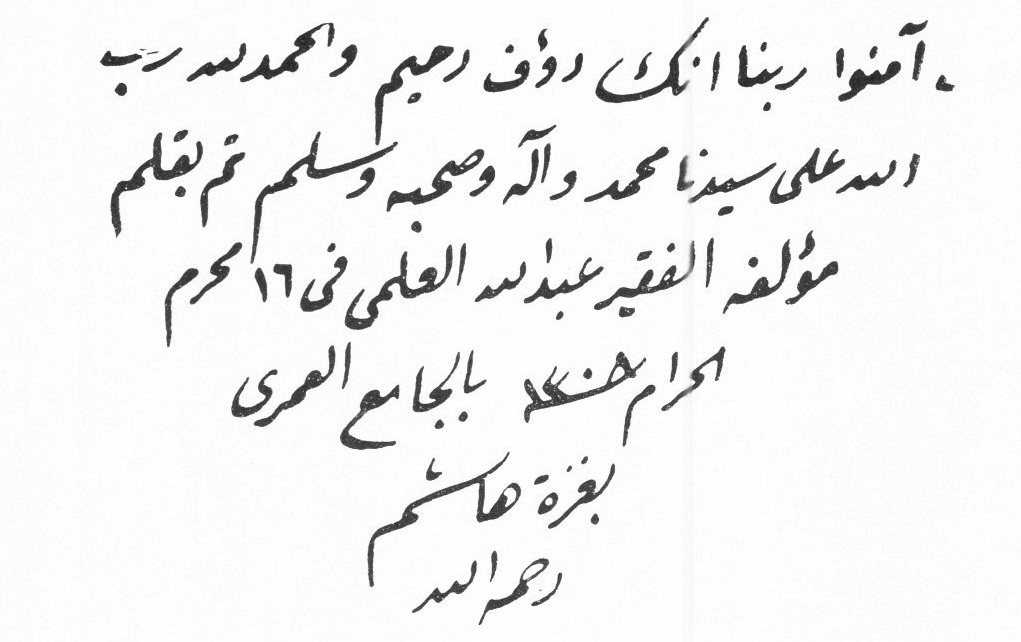 آمنوا ربنا انك رؤف رحيم والحمد لله رب
الله على سيدنا محمد وآله وصحبه وسلم تم بقلم
مؤلفه الفقير عبدالله العلمى فى ١٦ محرم
الحرام بالجامع العمرى
بغزة هاشم
رحمه الله